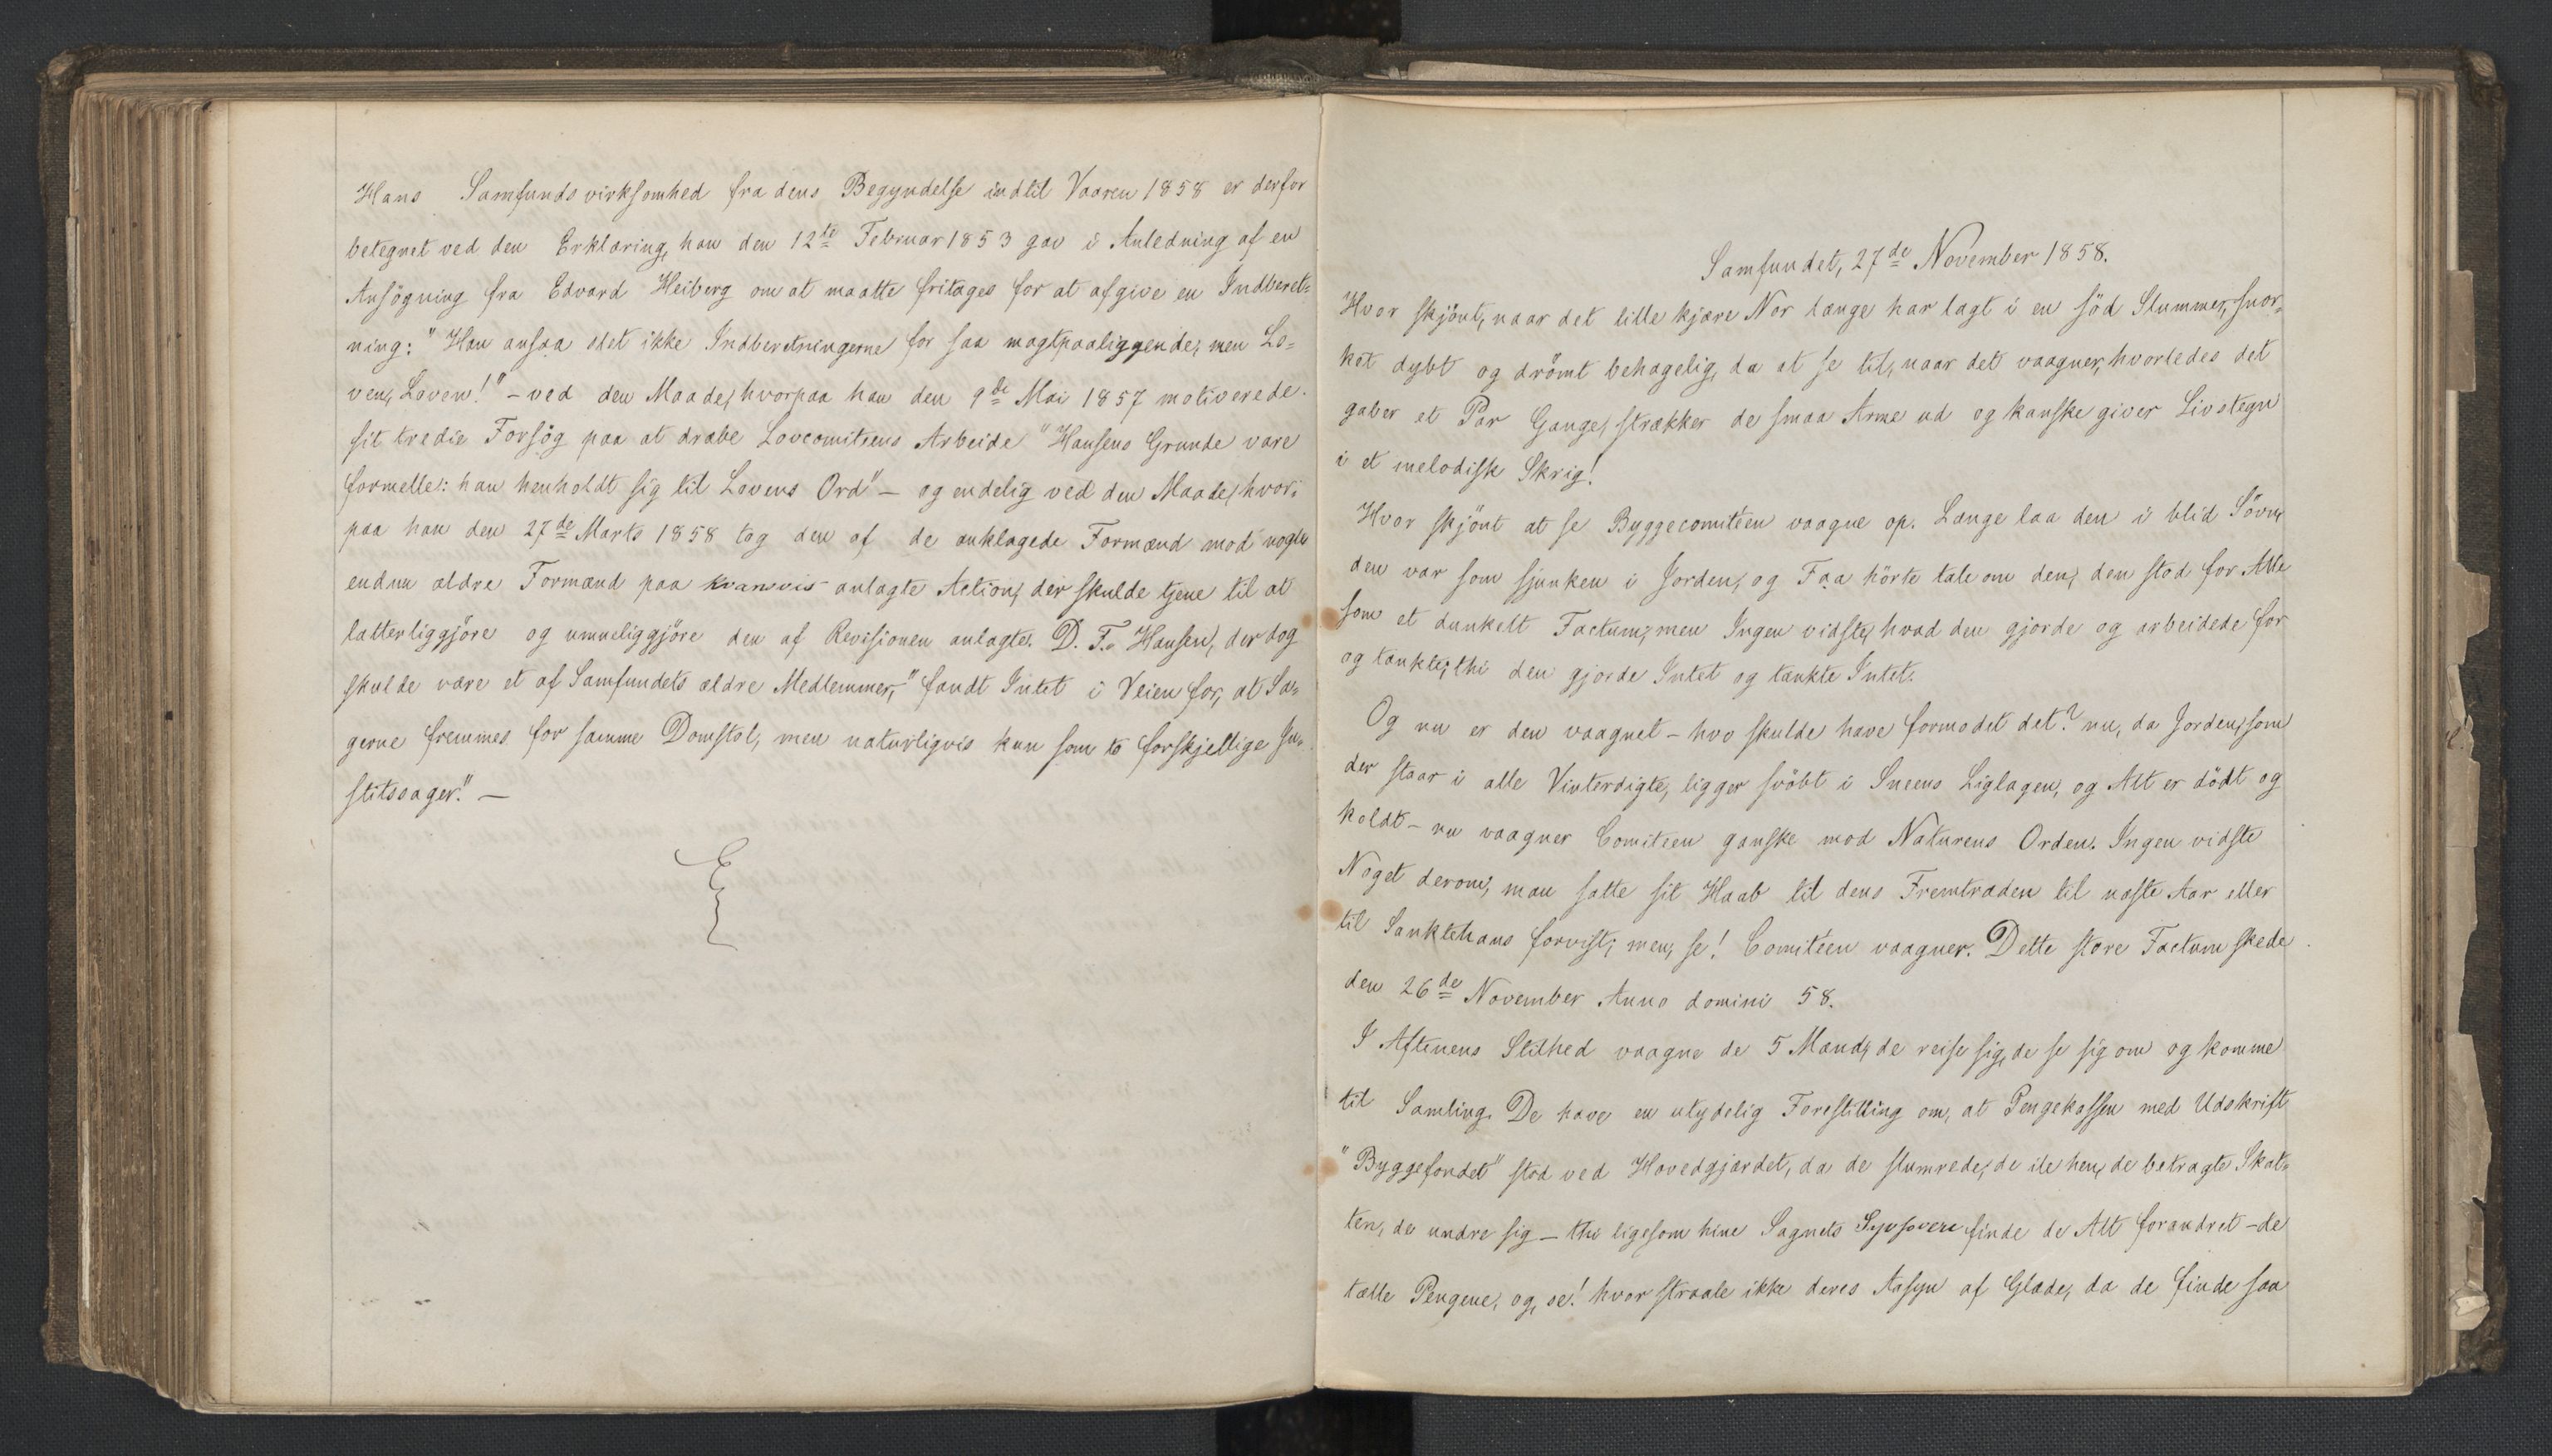 Hans Samfundsvirksomhed fra dens Begyndelse indtil Vaaren 1858 er derfor
betegnet ved den Erklæring, han den 12te Februar 1853 gav i Anledning af en
Ansögning fra Edvard Heiberg om at maatte fritages for at afgive en Indberet-
ning: "Han ansaa det ikke Indberetningerne for saa magtpaaliggende, men Lo-
ven, Loven!" - ved den Maade, hvorpaa han den 9de Mai 1857 motiverede
sit tredie Forsög paa at dræbe Lovcomiteens Arbeide "Hansens Grunde vare
formelle: han henholdt sig til Lovens Ord" - og endelig ved den Maade, hvor-
paa han den 27de Marts 1858 tog den af de anklagede Formænd mod nogle
endnu ældre Formænd paa kvansvis anlagte Action, der skulde tjene til at
latterliggjöre og umueliggjöre den af Revisionen anlagte. D. F. Hansen, der dog
skulde være et af Samfundets ældre Medlemmer, "fandt Intet i Veien for, at Sa-
gerne fremmes for samme Domstol, men naturligvis kun som to forskjellige Ju-
stitssager." -
Samfundet, 27de November 1858.
Hvor skjönt, naar det lille kjære Nor længe har lagt i en söd Slummer, snor-
ket dybt og drömt behagelig, da at se til, naar det vaagner, hvorledes det
gaber et Par Gange, strækker de smaa Arme ud og kanske giver Livstegn
i et melodisk Skrig!
Hvor skjönt at se Byggecomitéen vaagne op. Længe laa den i blid Sövn,
den var som sjunken i Jorden, og Faa hörte tale om den, den stod for Alle
som et dunkelt Factum, men Ingen vidste, hvad den gjorde og arbeidede for
og tænkte; thi den gjorde Intet og tænkte Intet.
Og nu er den vaagnet - hvo skulde have formodet det? nu, da Jorden, som
der staar i alle Vinterdigte, ligger svöbt i Sneens Liglagen, og Alt er dödt og
koldt - nu vaagner Comiteen ganske mod Naturens Orden. Ingen vidste
Noget derom, man satte sit Haab til dens Fremtræden til næste Aar eller
til Sanktehans forvist; men, se! Comitéen vaagner. Dette store Factum skede
den 26de November Anno domini 58.
I Aftenens Stilhed vaagne de 5 Mænd, de reise sig, de se sig om og komme
til Samling. De have en utydelig Forestilling om, at Pengekassen med Udskrift
"Byggefondet" stod ved Hovedgjærdet, da de slumrede, de ile hen, de betragte Skat-
ten, de undre sig - thi ligesom hine Sagnets Syvsovere finde de Alt forandret - de
tælle Pengene, og, se! hvor straale ikke deres Aasyn af Glæde, da de finde saa